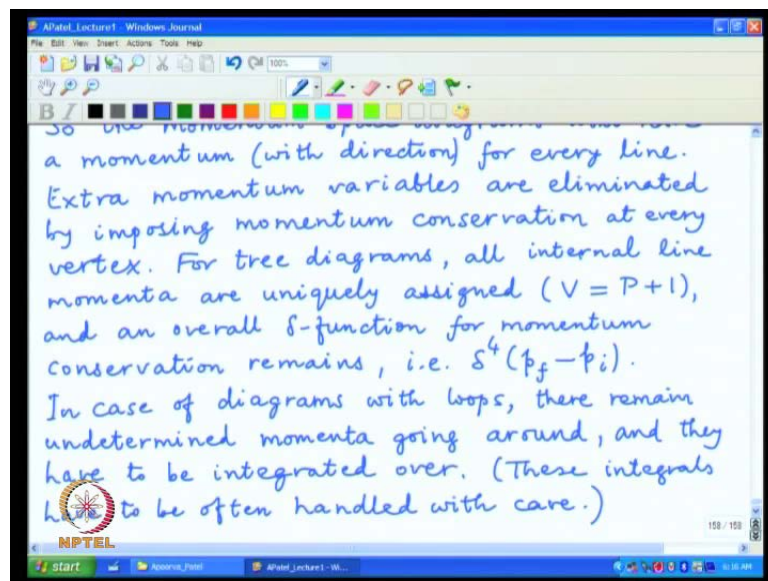 APatel_Lecture1 - Windows Journal
File Edit View Insert Actions Tools Help
100%
B I
So the momentum space diagrams must have
a momentum (with direction) for every line.
Extra momentum variables are eliminated
by imposing momentum conservation at every
vertex. For tree diagrams, all internal line
momenta are uniquely assigned (V = P + 1),
and an overall δ-function for momentum
conservation remains, i.e. δ⁴(p_f − p_i).
In case of diagrams with loops, there remain
undetermined momenta going around, and they
have to be integrated over. (These integrals
have to be often handled with care.)
158 / 158
NPTEL
start Apoorva_Patel APatel_Lecture1 - Wi...